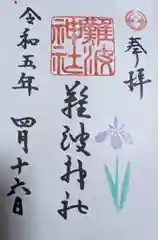 奉拝
難波神社
難波神社
令和五年
四月十六日